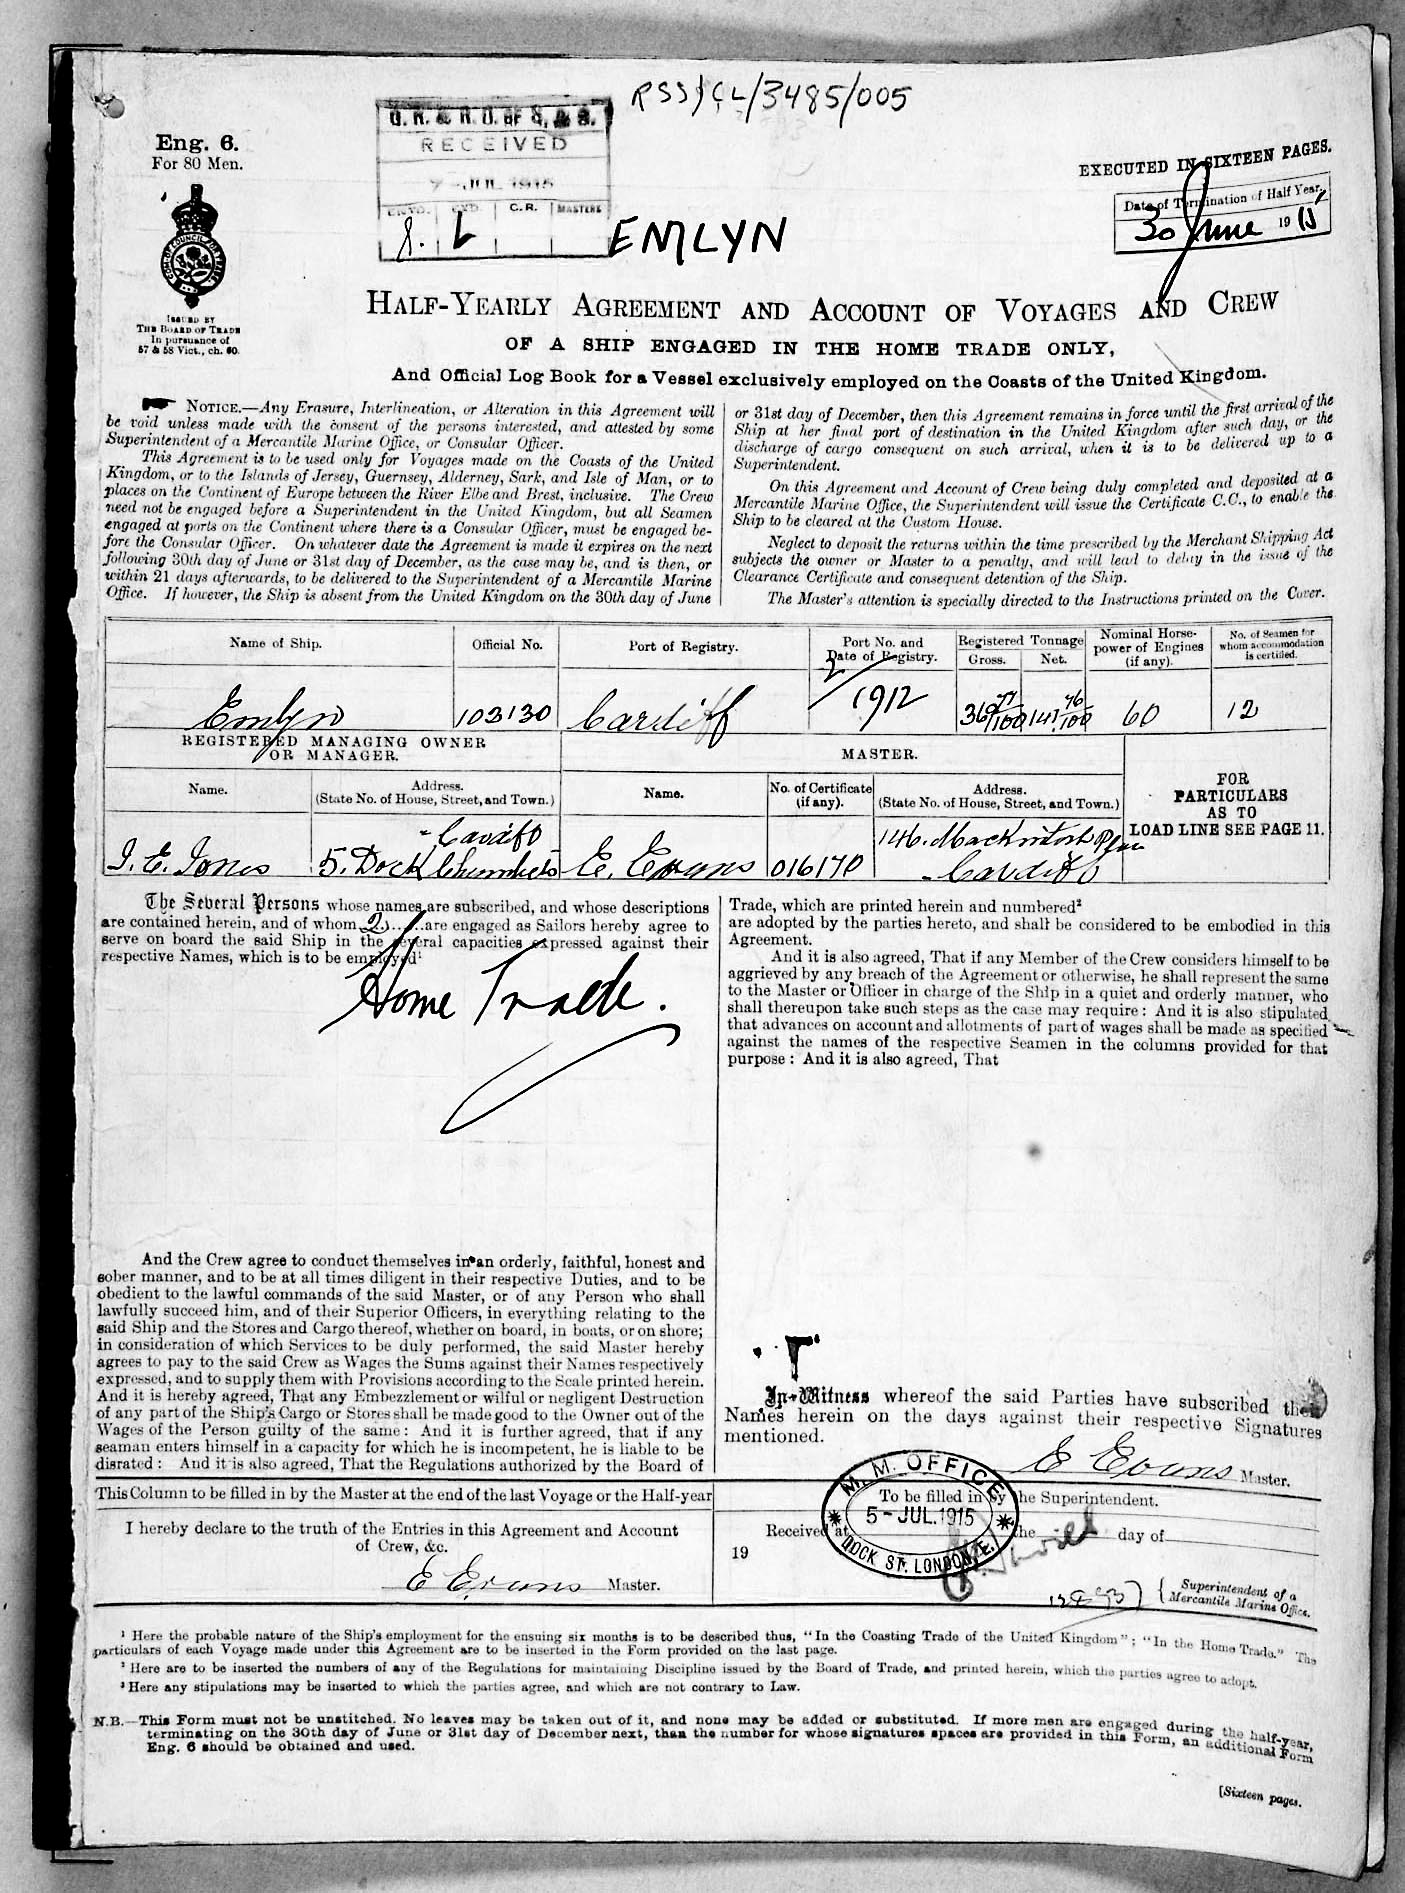 RSS/CL/3485/005
G. R. & R. O. OF S. & S.
RECEIVED
7 - JUL 1915
ENVD. EXD. C.R. MASTERS
Eng. 6.
For 80 Men.
EXECUTED IN SIXTEEN PAGES.
Date of Termination of Half Year,
30 June 1915
EMLYN
ISSUED BY
THE BOARD OF TRADE
In pursuance of
57 & 58 Vict., ch. 60.
HALF-YEARLY AGREEMENT AND ACCOUNT OF VOYAGES AND CREW
OF A SHIP ENGAGED IN THE HOME TRADE ONLY,
And Official Log Book for a Vessel exclusively employed on the Coasts of the United Kingdom.
NOTICE.—Any Erasure, Interlineation, or Alteration in this Agreement will
be void unless made with the consent of the persons interested, and attested by some
Superintendent of a Mercantile Marine Office, or Consular Officer.
This Agreement is to be used only for Voyages made on the Coasts of the United
Kingdom, or to the Islands of Jersey, Guernsey, Alderney, Sark, and Isle of Man, or to
places on the Continent of Europe between the River Elbe and Brest, inclusive. The Crew
need not be engaged before a Superintendent in the United Kingdom, but all Seamen
engaged at ports on the Continent where there is a Consular Officer, must be engaged be-
fore the Consular Officer. On whatever date the Agreement is made it expires on the next
following 30th day of June or 31st day of December, as the case may be, and is then, or
within 21 days afterwards, to be delivered to the Superintendent of a Mercantile Marine
Office. If however, the Ship is absent from the United Kingdom on the 30th day of June
or 31st day of December, then this Agreement remains in force until the first arrival of the
Ship at her final port of destination in the United Kingdom after such day, or the
discharge of cargo consequent on such arrival, when it is to be delivered up to a
Superintendent.
On this Agreement and Account of Crew being duly completed and deposited at a
Mercantile Marine Office, the Superintendent will issue the Certificate C.C., to enable the
Ship to be cleared at the Custom House.
Neglect to deposit the returns within the time prescribed by the Merchant Shipping Act
subjects the owner or Master to a penalty, and will lead to delay in the issue of the
Clearance Certificate and consequent detention of the Ship.
The Master's attention is specially directed to the Instructions printed on the Cover.
Name of Ship. Official No. Port of Registry. Port No. and Date of Registry. Registered Tonnage Gross. Net. Nominal Horse-power of Engines (if any). No. of Seamen for whom accommodation is certified.
Emlyn 103130 Cardiff 2/1912 147 76/100 60 12
REGISTERED MANAGING OWNER
OR MANAGER.
MASTER.
FOR
PARTICULARS
AS TO
LOAD LINE SEE PAGE 11.
Name. Address. (State No. of House, Street, and Town.) Name. No. of Certificate (if any). Address. (State No. of House, Street, and Town.)
J. E. Jones 5. Dock Chambers Cardiff E. Evans 016170 146. Mackintosh Place Cardiff
The Several Persons whose names are subscribed, and whose descriptions
are contained herein, and of whom 2 are engaged as Sailors hereby agree to
serve on board the said Ship in the several capacities expressed against their
respective Names, which is to be employed¹
Home Trade.
And the Crew agree to conduct themselves in an orderly, faithful, honest and
sober manner, and to be at all times diligent in their respective Duties, and to be
obedient to the lawful commands of the said Master, or of any Person who shall
lawfully succeed him, and of their Superior Officers, in everything relating to the
said Ship and the Stores and Cargo thereof, whether on board, in boats, or on shore;
in consideration of which Services to be duly performed, the said Master hereby
agrees to pay to the said Crew as Wages the Sums against their Names respectively
expressed, and to supply them with Provisions according to the Scale printed herein.
And it is hereby agreed, That any Embezzlement or wilful or negligent Destruction
of any part of the Ship's Cargo or Stores shall be made good to the Owner out of the
Wages of the Person guilty of the same: And it is further agreed, that if any
seaman enters himself in a capacity for which he is incompetent, he is liable to be
disrated: And it is also agreed, That the Regulations authorized by the Board of
Trade, which are printed herein and numbered²
are adopted by the parties hereto, and shall be considered to be embodied in this
Agreement.
And it is also agreed, That if any Member of the Crew considers himself to be
aggrieved by any breach of the Agreement or otherwise, he shall represent the same
to the Master or Officer in charge of the Ship in a quiet and orderly manner, who
shall thereupon take such steps as the case may require: And it is also stipulated
that advances on account and allotments of part of wages shall be made as specified
against the names of the respective Seamen in the columns provided for that
purpose: And it is also agreed, That
In Witness whereof the said Parties have subscribed their
Names herein on the days against their respective Signatures
mentioned.
E Evans Master.
This Column to be filled in by the Master at the end of the last Voyage or the Half-year
I hereby declare to the truth of the Entries in this Agreement and Account
of Crew, &c.
E Evans Master.
To be filled in by the Superintendent.
Received at the day of
19
M. M. OFFICE
5 - JUL. 1915
DOCK ST. LONDON, E.
Superintendent of a
Mercantile Marine Office.
¹ Here the probable nature of the Ship's employment for the ensuing six months is to be described thus, "In the Coasting Trade of the United Kingdom"; "In the Home Trade." The
particulars of each Voyage made under this Agreement are to be inserted in the Form provided on the last page.
² Here are to be inserted the numbers of any of the Regulations for maintaining Discipline issued by the Board of Trade, and printed herein, which the parties agree to adopt.
³ Here any stipulations may be inserted to which the parties agree, and which are not contrary to Law.
N.B.—This Form must not be unstitched. No leaves may be taken out of it, and none may be added or substituted. If more men are engaged during the half-year,
terminating on the 30th day of June or 31st day of December next, than the number for whose signatures spaces are provided in this Form, an additional Form
Eng. 6 should be obtained and used.
[Sixteen pages.